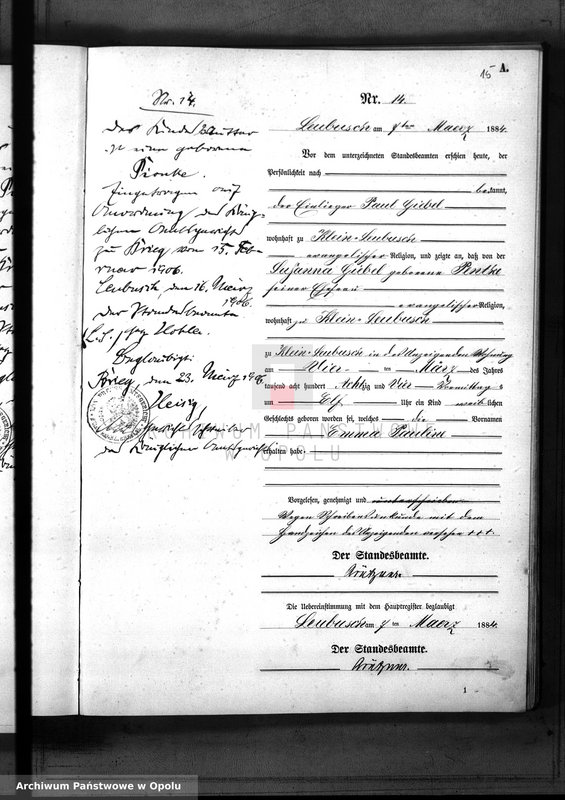 15 A.
Nr. 14.
Nr. 14.
Leubusch am 7ten Maerz 1884.
Vor dem unterzeichneten Standesbeamten erschien heute, der
Persönlichkeit nach
bekannt,
der Einlieger Paul Giebel
wohnhaft zu Klein-Leubusch
evangelischer Religion, und zeigte an, daß von der
Susanna Giebel geborene
seiner Ehefrau
evangelischer Religion,
wohnhaft zu Klein-Leubusch
zu Klein-Leubusch in des Anzeigenden Wohnung
am Vier ten März des Jahres
tausend acht hundert Achtzig und Vier Vormittag s
um Elf Uhr ein Kind weib lichen
Geschlechts geboren worden sei, welches die Vornamen
Emma Paulin
erhalten habe.
Vorgelesen, genehmigt und unterschrieben
Wegen Schreibensunkunde mit dem
Handzeichen des Anzeigenden versehen +++
Der Standesbeamte.
Die Uebereinstimmung mit dem Hauptregister beglaubigt
Leubusch am 7 ten Maerz 1884.
Der Standesbeamte.
1
Des Kindes Mutter
ist eine geborene
Pionke.
Eingetragen auf
Anordnung des König-
lichen Amtsgerichts
zu Brieg vom 15. Feb-
ruar 1906.
Leubusch, den 16. März
1906.
Der Standesbeamte
Beglaubigt:
Brieg, den 23. März 1906
des Königlichen Amtsgerichts
ARCHIWUM PAŃSTWOWE
W OPOLU
Archiwum Państwowe w Opolu